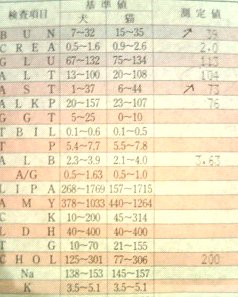 検査項目 基準値 測定値
犬 猫
BUN 7~32 15~35 39
CREA 0.5~1.6 0.9~2.6 2.0
GLU 67~132 75~134 113
ALT 13~100 20~108 104
AST 1~37 6~44 73
ALKP 20~157 23~107 76
GGT 5~25 0~10
TBIL 0.1~0.6 0.1~0.5
TP 5.4~7.7 5.5~7.8
ALB 2.3~3.9 2.1~4.0 3.63
A/G 0.5~1.63 0.5~1.0
LIPA 268~1769 157~1715
AMY 378~1033 440~1264
CK 10~200 45~314
LDH 40~400 40~400
TG 10~70 21~155
CHOL 125~301 77~306 200
Na 138~153 145~157
K 3.5~5.1 3.5~5.1